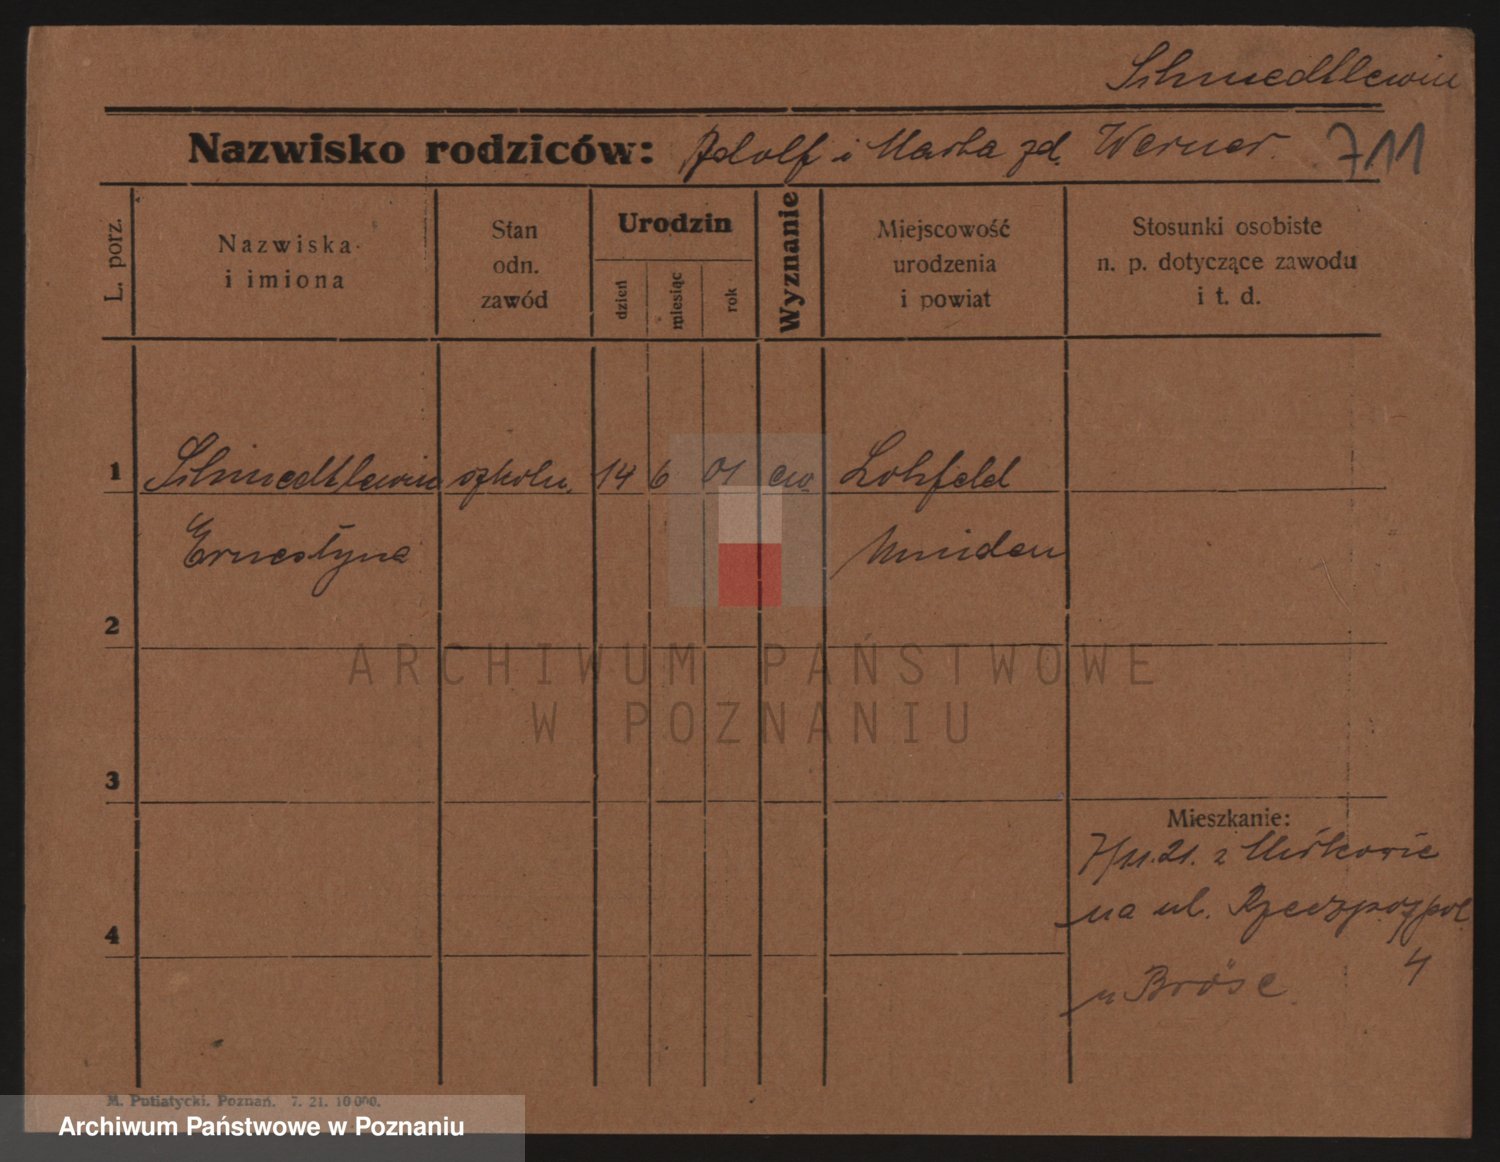 Schmedtlewin
Nazwisko rodziców: Adolf i Marta zd. Werner. 711
L. porz.
Nazwiska i imiona
Stan odn. zawód
Urodzin
dzień
miesiąc
rok
Wyznanie
Miejscowość urodzenia i powiat
Stosunki osobiste n. p. dotyczące zawodu i t. d.
1 Schmedtlewin szkoln. 14 6 01 ew. Lohfeld
Ernestyna Minden
2
3
Mieszkanie:
7/11.21. z
na ul. Rzeczpospol.
4
4
u Bröse
ARCHIWUM PAŃSTWOWE
W POZNANIU
M. Putiatycki. Poznań. 7. 21. 10000.
Archiwum Państwowe w Poznaniu